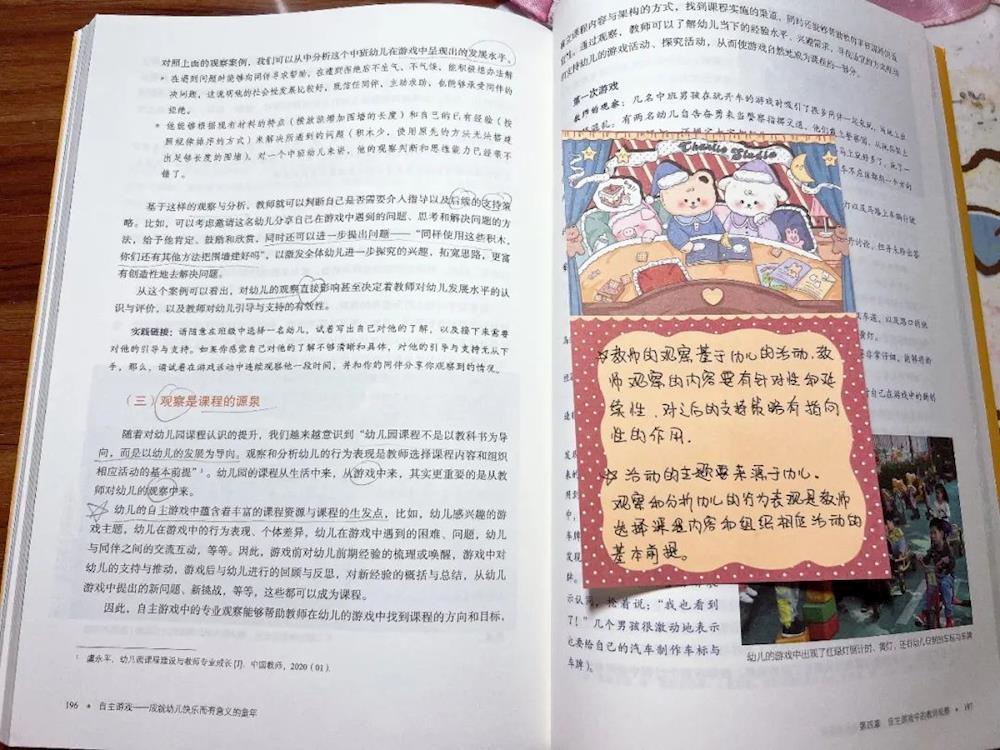 对照上面的观察案例，我们可以从中分析这个中班幼儿在游戏中呈现出的发展水平。
• 在遇到问题时能够向同伴寻求帮助，在遭到拒绝后不生气、不气馁，能积极想办法解
决问题，这说明他的社会性发展比较好，既信任同伴，主动求助，也能够承受同伴的
拒绝。
• 他能够根据现有材料的特点（接放能增加围墙的长度）和自己的已有经验（按
照规律排序的方式）来解决所遇到的问题（积木少，使用原先的方法无法搭建
出足够长度的围墙）。对一个中班幼儿来讲，他的观察判断和思维能力已经很不
错了。
基于这样的观察与分析，教师就可以判断自己是否需要介入指导以及后续的支持策
略。比如，可以考虑邀请这名幼儿分享自己在游戏中遇到的问题、思考和解决问题的方
法，给予他肯定、鼓励和欣赏，同时还可以进一步提出问题——“同样使用这些积木，
你们还有其他方法把围墙建好吗”，以激发全体幼儿进一步探究的兴趣，拓宽思路，更富
有创造性地去解决问题。
从这个案例可以看出，对幼儿的观察直接影响甚至决定着教师对幼儿发展水平的认
识与评价，以及教师对幼儿引导与支持的有效性。
实践链接：请随意在班级中选择一名幼儿，试着写出自己对他的了解，以及接下来需要
对他的引导与支持。如果你感觉自己对他的了解不够清晰和具体，对他的引导与支持无从下
手，那么，请试着在游戏活动中连续观察他一段时间，并和你的同伴分享你观察到的情况。
（三）观察是课程的源泉
随着对幼儿园课程认识的提升，我们越来越意识到“幼儿园课程不是以教科书为导
向，而是以幼儿的发展为导向。观察和分析幼儿的行为表现是教师选择课程内容和组织
相应活动的基本前提”¹。幼儿园的课程从生活中来，从游戏中来，其实更重要的是从教
师对幼儿的观察中来。
幼儿的自主游戏中蕴含着丰富的课程资源与课程的生发点，比如，幼儿感兴趣的游
戏主题，幼儿在游戏中的行为表现、个体差异，幼儿在游戏中遇到的困难、问题，幼儿
与同伴之间的交流互动，等等。因此，游戏前对幼儿前期经验的梳理或唤醒，游戏中对
幼儿的支持与推动，游戏后与幼儿进行的回顾与反思，对新经验的概括与总结，从幼儿
游戏中提出的新问题、新挑战，等等，这些都可以成为课程。
因此，自主游戏中的专业观察能够帮助教师在幼儿的游戏中找到课程的方向和目标，
1 虞永平. 幼儿园课程建设与教师专业成长[J]. 中国教师，2020（01）.
196 • 自主游戏——成就幼儿快乐而有意义的童年
建立课程内容与架构的方式，找到课程实施的渠道，同时还能够
通过观察，教师可以了解幼儿当下的经验水平、兴趣需求，寻找适宜的方式
支持幼儿的游戏活动、探究活动，从而使游戏自然地成为课程的一部分。
第一次游戏
教师的观察：几名中班男孩在玩开车的游戏时吸引了很多同伴一起来玩，
有两名幼儿自告奋勇来当警察指挥交通，
Charlie Studio
☆教师的观察基于幼儿的活动，教
师观察的内容要有针对性和延
续性，对之后的支持策略有指向
性的作用.
☆活动的主题要来源于幼儿.
观察和分析幼儿的行为表现是教师
选择课程内容和组织相应活动的
基本前提。
示认同，抢着说：“我也看到
了！”几个男孩很激动地表示
也要给自己的汽车制作车标与
车牌）。
幼儿的游戏中出现了红绿灯倒计时、黄灯，还有幼儿自制的车标与车牌
第四章 自主游戏中的教师观察 • 197